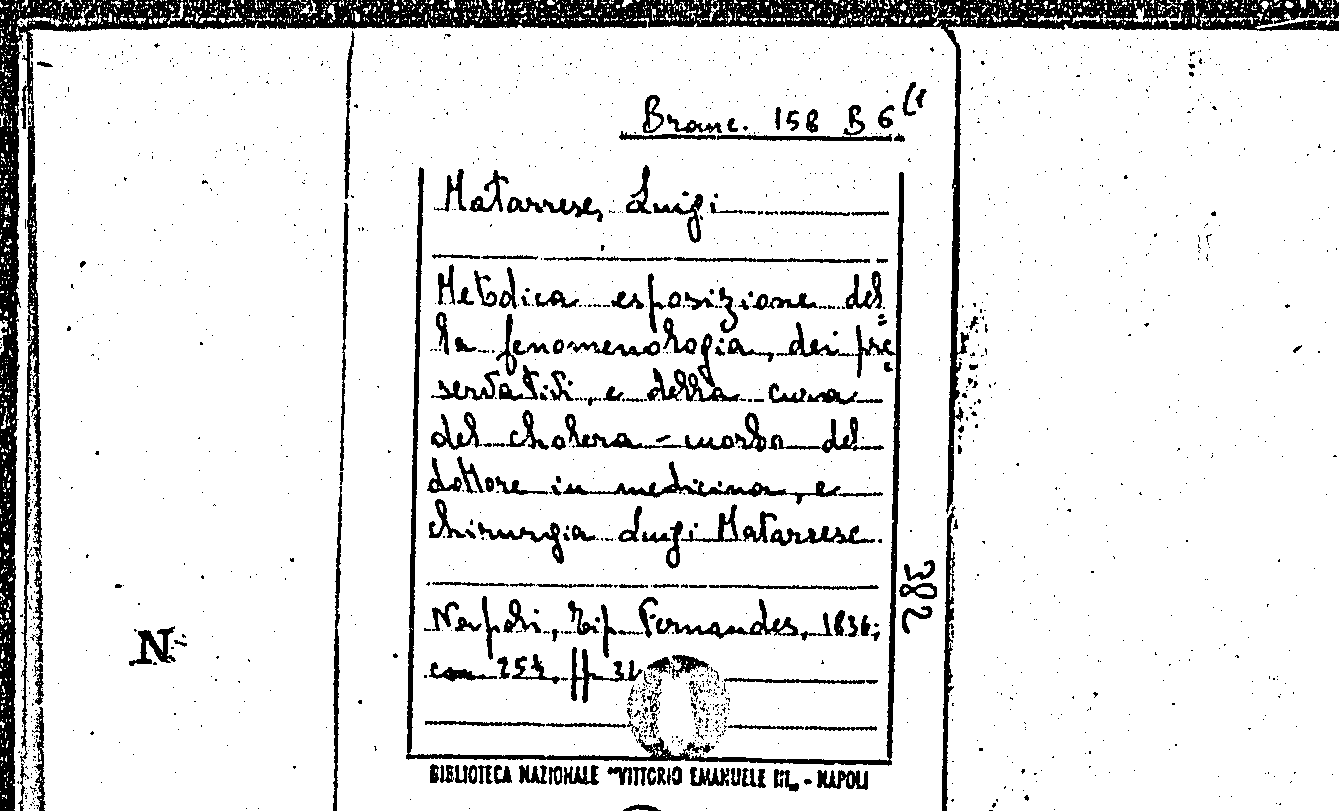 Branc. 158 B 6 (1
Matarrese, Luigi
Metodica esposizione del=
la fenomenologia, dei pre=
servativi, e della cura
del cholera-morbo del
dottore in medicina, e
chirurgia Luigi Matarrese.
Napoli, Tip. Fernandes, 1836;
cm. pp.
382
N
BIBLIOTECA NAZIONALE "VITTORIO EMANUELE III„ - NAPOLI